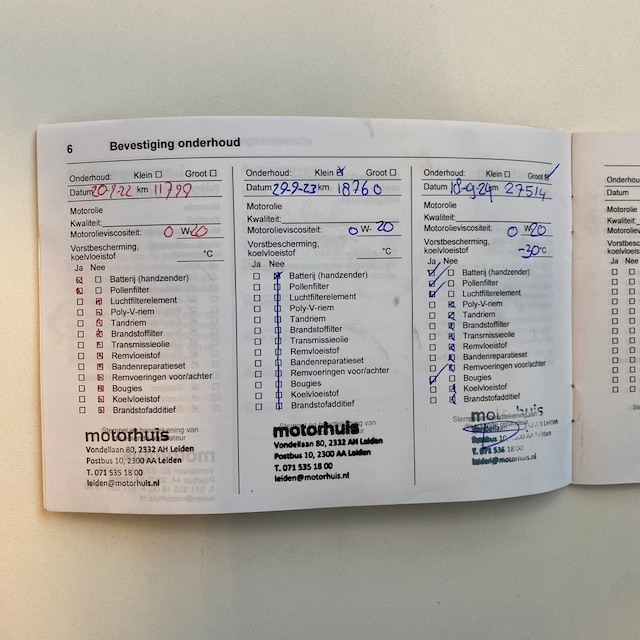 6 Bevestiging onderhoud
Onderhoud: Klein Groot
Datum 20-9-22 km 11799
Motorolie
Kwaliteit:
Motorolieviscositeit: 0 W- 20
Vorstbescherming,
koelvloeistof °C
Ja Nee
Batterij (handzender)
Pollenfilter
Luchtfilterelement
Poly-V-riem
Tandriem
Brandstoffilter
Transmissieolie
Remvloeistof
Bandenreparatieset
Remvoeringen voor/achter
Bougies
Koelvloeistof
Brandstofadditief
Stempel en handtekening van
motorhuis
Vondellaan 80, 2332 AH Leiden
Postbus 10, 2300 AA Leiden
T. 071 535 18 00
leiden@motorhuis.nl
Onderhoud: Klein Groot
Datum 29-9-23 km 18760
Motorolie
Kwaliteit:
Motorolieviscositeit: 0 W- 20
Vorstbescherming,
koelvloeistof °C
Ja Nee
Batterij (handzender)
Pollenfilter
Luchtfilterelement
Poly-V-riem
Tandriem
Brandstoffilter
Transmissieolie
Remvloeistof
Bandenreparatieset
Remvoeringen voor/achter
Bougies
Koelvloeistof
Brandstofadditief
motorhuis
Vondellaan 80, 2332 AH Leiden
Postbus 10, 2300 AA Leiden
T. 071 535 18 00
leiden@motorhuis.nl
Onderhoud: Klein Groot
Datum 18-9-24 km 27514
Motorolie
Kwaliteit:
Motorolieviscositeit: 0 W- 20
Vorstbescherming,
koelvloeistof -30 °C
Ja Nee
Batterij (handzender)
Pollenfilter
Luchtfilterelement
Poly-V-riem
Tandriem
Brandstoffilter
Transmissieolie
Remvloeistof
Bandenreparatieset
Remvoeringen voor/achter
Bougies
Koelvloeistof
Brandstofadditief
motorhuis
Postbus 10, AA Leiden
T. 071 535 18 00
leiden@motorhuis.nl
Datum
Motorolie
Kwaliteit:
Ja Nee